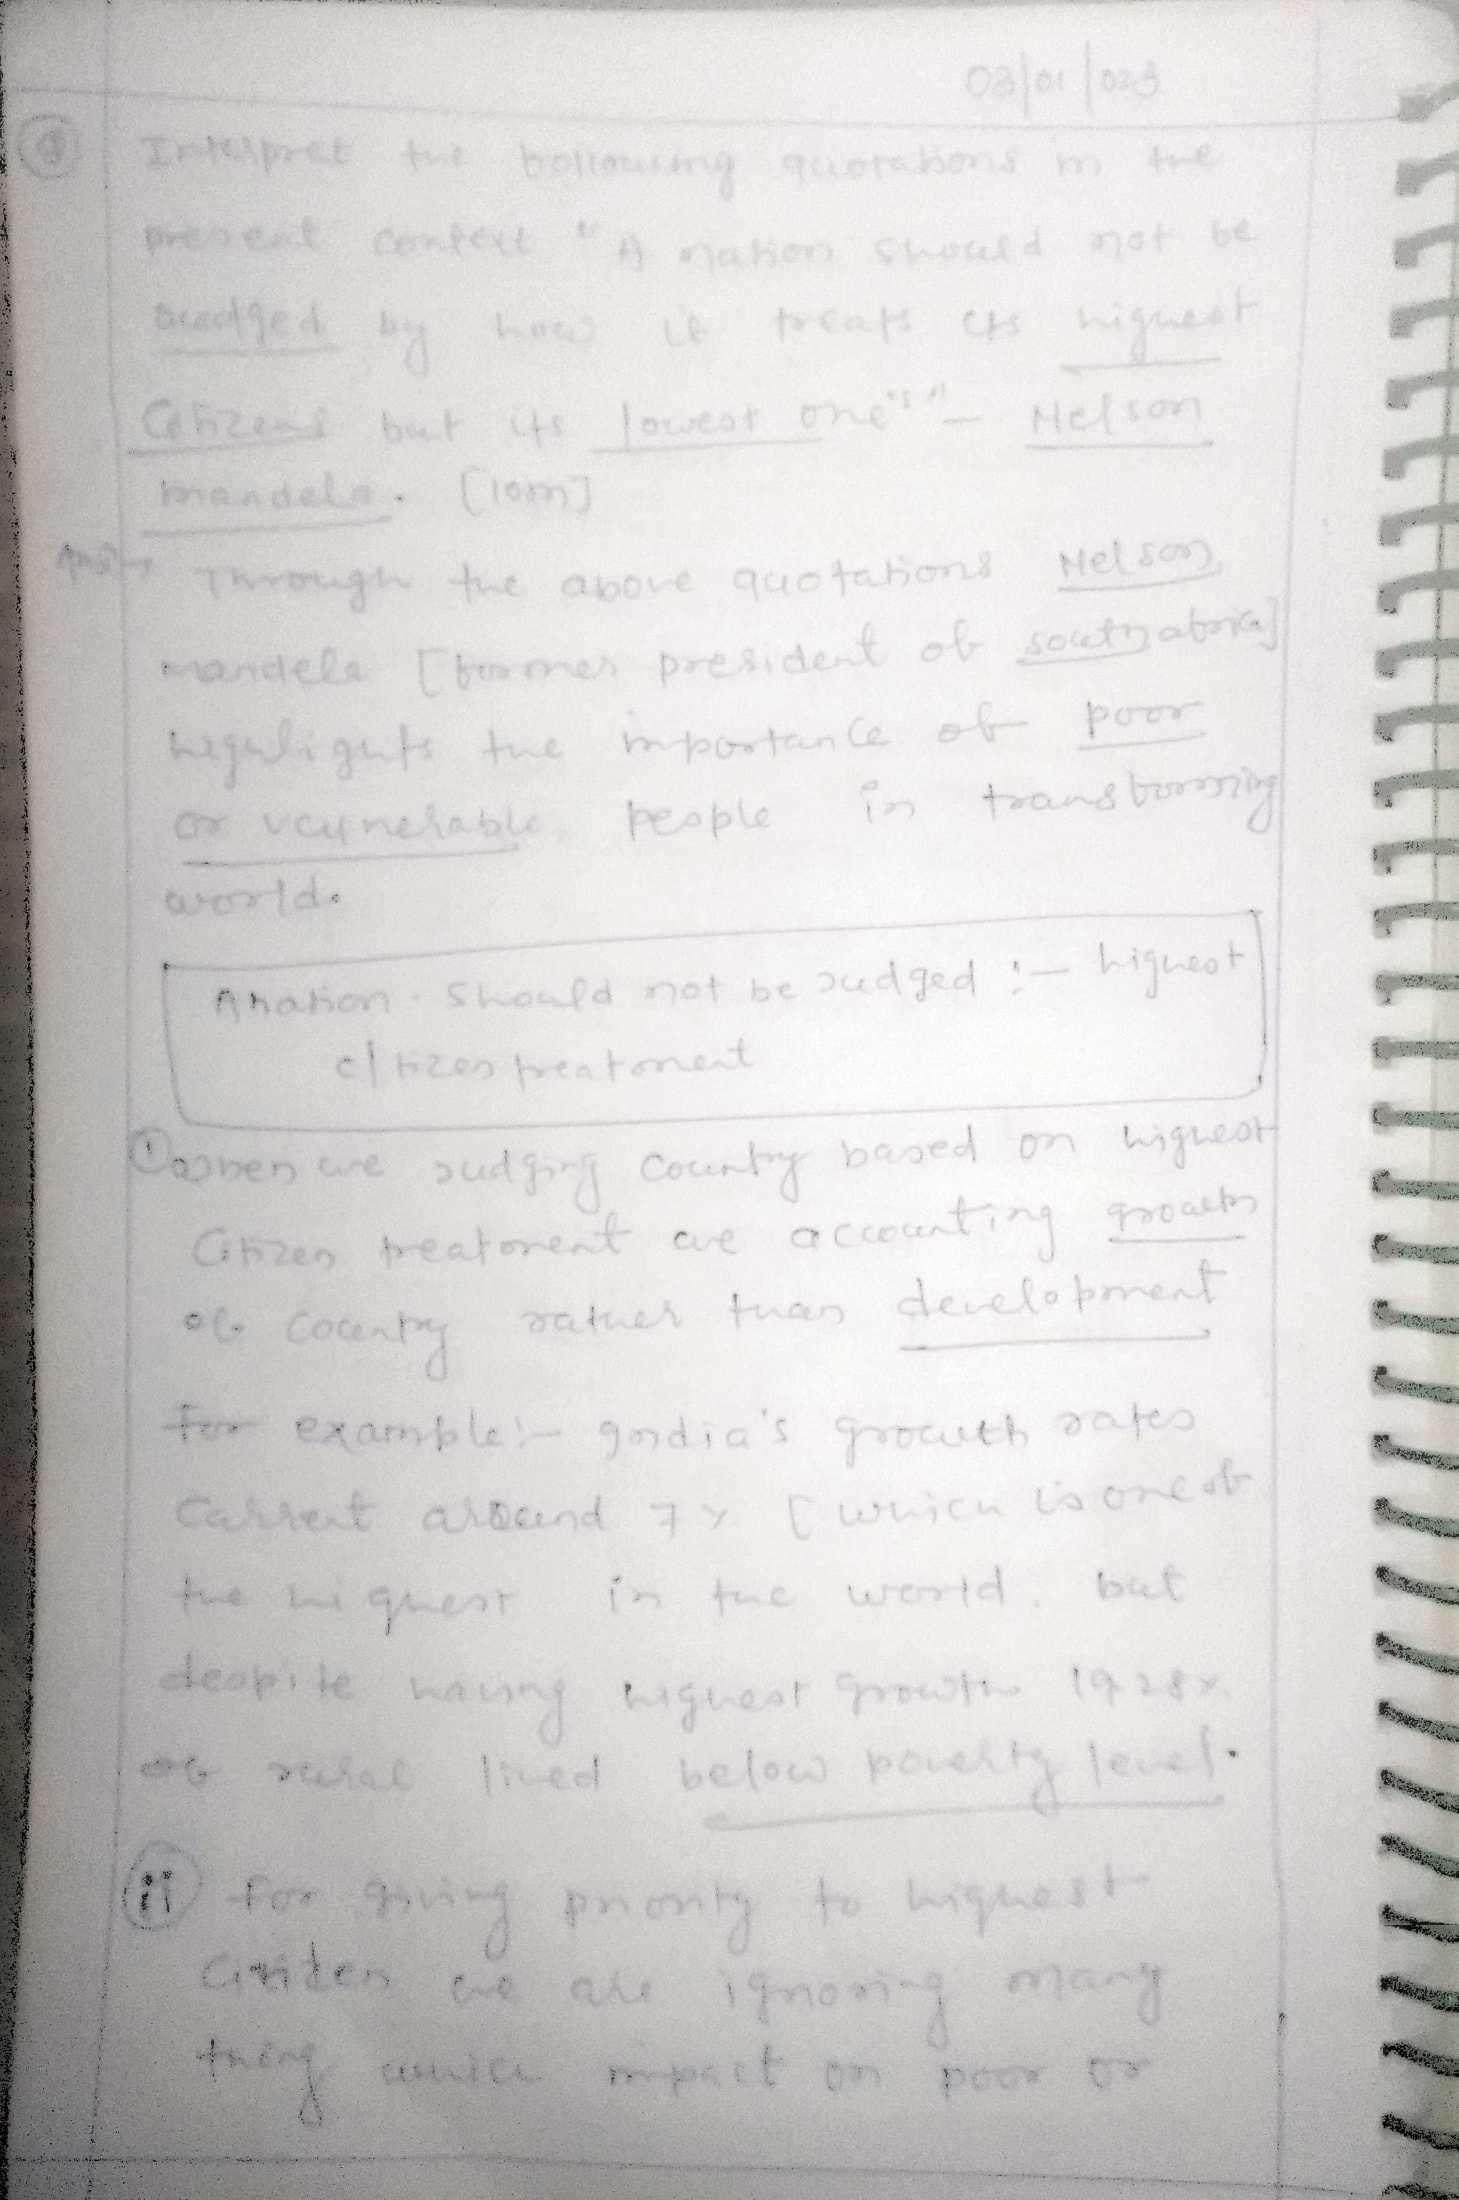 03/01/023
Q Interpret the following quotations in the
present context " A nation should not be
Judged by how it treats its highest
Citizens but its lowest one's" – Nelson
mandela. [10m]
Ans:→ Through the above quotations Nelson
mandela [former president of south africa]
heghlights the importance of poor
or vulnerable people in transforming
world.
A nation should not be Judged :– highest
citizen treatment
① when we Judging Country based on highest
Citizen treatment we accounting growth
of Country rather than development
For example:– India's growth rates
Current around 7% [which is one of
the highest in the world. but
despite having highest growth 19.28%
of rural lived below poverty level.
ii For giving priority to highest
Citizen we are ignoring many
thing which impact on poor or